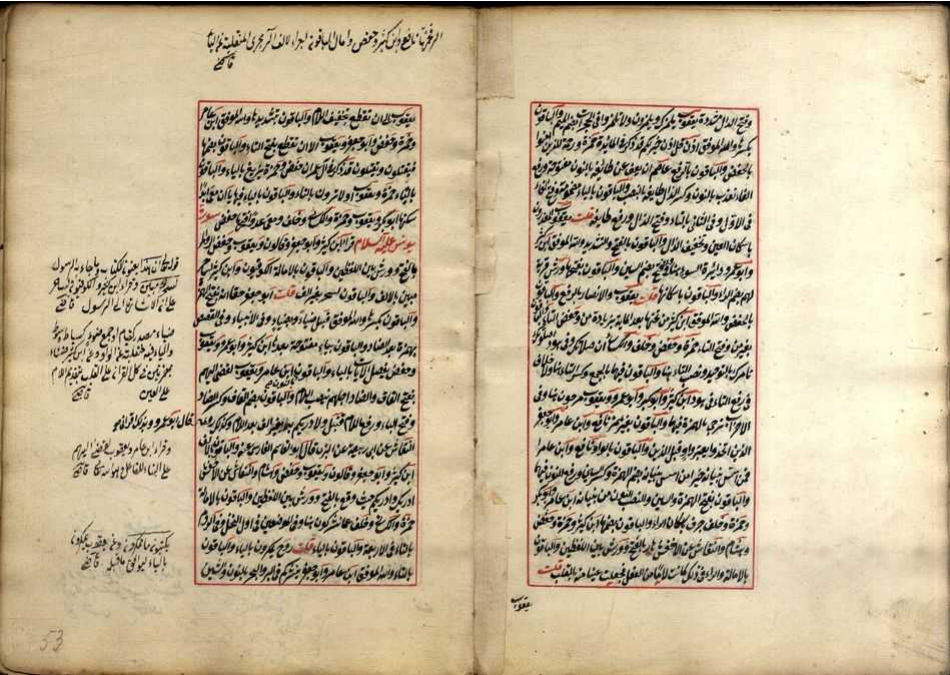 وفتح الدال مشددة يعقوب يلمزك ويلمزون ولا تلمزوا في الحجرات بضم الميم والباقون
بكسرها والله الموفق اذن قل اذن خير لكم قد ذكر في المائدة حمزة ورحمة للذين امنوا
بالخفض والباقون بالرفع عاصم ان نعف عن طائفة بالنون مفتوحة ورفع
الفاء نعذب بالنون وكسر الذال طائفة بالنصب والباقون بالياء مضمومة وفتح الفاء
في الاول وفي الثاني بالتاء وفتح الذال ورفع طائفة قلت يعقوب المعذرون
باسكان العين وتخفيف الذال والباقون بالفتح والتشديد والله الموفق ابن كثير
وابو عمرو دائرة السوء هنا وفي الفتح بضم السين والباقون بفتحها ورش قربة
لهم بضم الراء والباقون باسكانها قلت يعقوب والانصار بالرفع والباقون
بالخفض والله الموفق ابن كثير من تحتها بعد المائة بزيادة من وخفض التاء والباقون
بغير من وفتح التاء حمزة وحفص وخلف والكسائي ان صلاتك وفي هود اصلوتك
تامرك بالتوحيد ونصب التاء هنا والباقون فيهما بالجمع وكسر التاء هنا ولا خلاف
في رفع التاء في هود ابن كثير وابو بكر وابو عمرو ويعقوب مرجون هنا وفي
الاحزاب ترجي بالهمزة فيهما والباقون بغير همز نافع وابن عامر وابو جعفر
الذين اتخذوا بغير واو قبل الذين والباقون بالواو نافع وابن عامر
فمن اسس بنيانه خير ام من اسس بنيانه بضم الهمزة وكسر السين ورفع النون فيهما
والباقون بفتح الهمزة والسين والنصب النون من بنيانه ابن عامر وابو بكر
وحمزة وخلف جرف باسكان الراء والباقون بضمها ابن كثير وحمزة وحفص
وهشام والنقاش عن الاخفش هار بالفتح وورش بين اللفظين والباقون
بالامالة والراء في ذلك كانت لاما من الفعل فجعلت عينا منه بالقلب قلت
يعقوب
الر فخمها نافع وابن كثير وحفص وامال الباقون اجراء لالف الر مجرى المنقلبة عن الياء
قاضي
يعقوب الى ان تقطع تخفيف اللام والباقون بتشديدها والله الموفق ابن عامر
وحمزة وحفص وابو جعفر ويعقوب الا ان تقطع بفتح التاء والباقون بضمها
فيقتلون ويقتلون قد ذكر في آل عمران حفص وحمزة يزيغ بالياء والباقون
بالتاء حمزة ويعقوب اولا ترون بالتاء والباقون بالياء فيها يا ان معي ابدا
سكنها ابو بكر ويعقوب وحمزة والكسائي وخلف ومعي عدوا فتحها حفص سورة
يونس عليه السلام قرأ ابن كثير وابو جعفر وقالون ويعقوب وحفص الر
بالفتح وورش بين اللفظين والباقون بالامالة الكوفيون وابن كثير لساحر
مبين بالالف والباقون لسحر بغير الف قلت ابو جعفر حقا انه بفتح الهمزة
والباقون بكسرها والله الموفق قنبل ضياء وبضياء وفي الانبياء وفي القصص
بهمزة بعد الضاد والباقون بياء مفتوحة بعدها ابن كثير وابو عمرو ويعقوب
وحفص يفصل الآيات بالياء والباقون بالنون ابن عامر ويعقوب لقضي اليهم
بفتح القاف والضاد اجلهم بنصب اللام والباقون بضم القاف وكسر الضاد
وفتح الياء ورفع اللام قنبل ولا ادريكم به بغير الف بعد اللام وكذلك روى
النقاش عن ابي ربيعة عن البزي قال ابو القاسم الفارسي عنه والباقون بالف
ابن كثير وابو جعفر وقالون ويعقوب وحفص وهشام والنقاش عن الاخفش
ادريكم وادريك حيث وقع بالفتح وورش بين اللفظين والباقون بالامالة
حمزة والكسائي وخلف عما تشركون هنا وفي الموضعين في اول النحل وفي الروم
بالتاء في الاربعة والباقون بالياء قلت روح يمكرون بالياء والباقون
بالتاء والله الموفق ابن عامر وابو جعفر ينشركم في البر والبحر بالنون والشين
قوله تعالى ان هذا يعنون الكتاب وما جاء به الرسول
لسحر مبين وقراء ابن كثير والكوفيون لساحر
على ان الاشارة الى الرسول قاضي
ضياء مصدر كقيام او جمع ضوء كسياط وسوط
والياء فيه منقلبة عن الواو وعن ابن كثير ضئاء
بهمزتين في كل القرآن على القلب بتقديم اللام
على العين قاضي
قال ابو عمرو وبذلك قرأت
وقراء ابن عامر ويعقوب لقضى اليهم
على البناء للفاعل وهو الله تعالى قاضي
وعن يعقوب يمكرون
بالياء ليوافق ماقبله قاضي
53